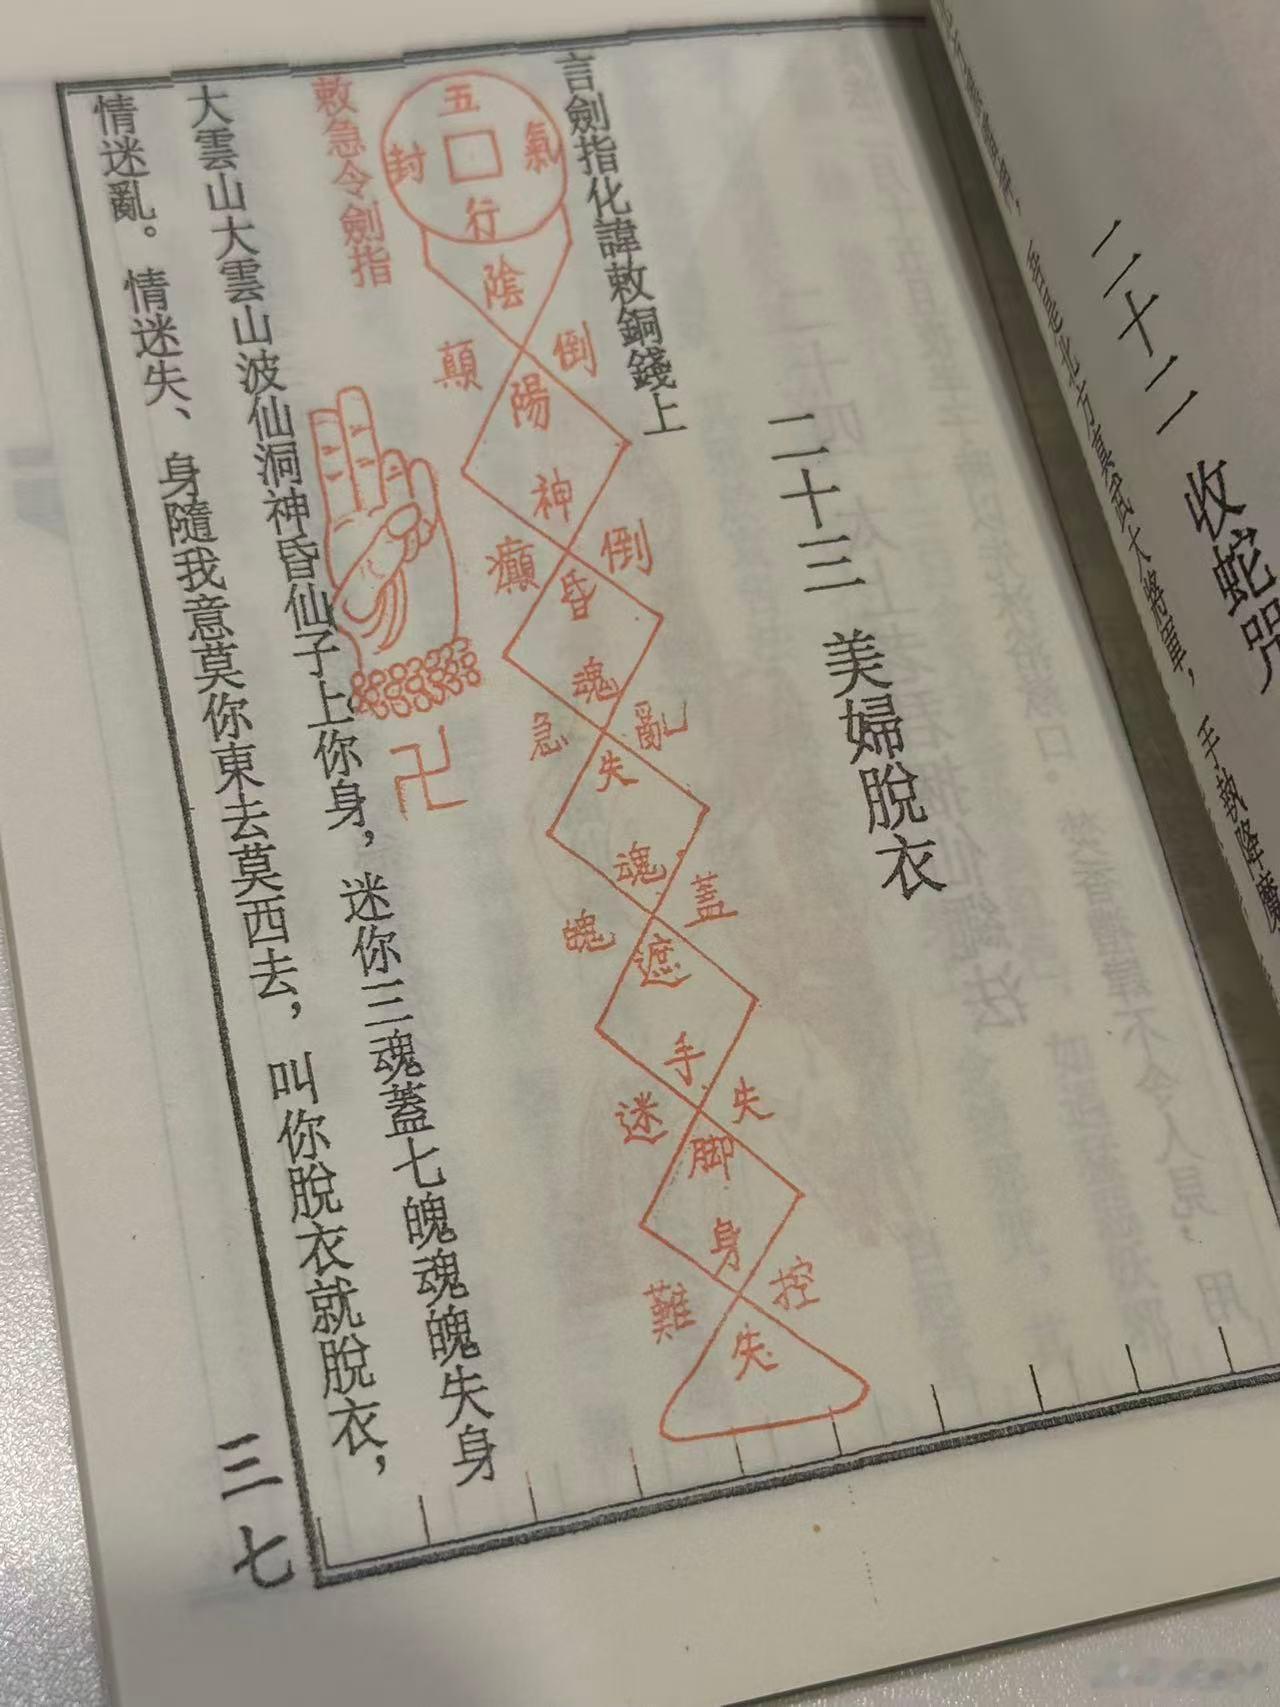 二十二 收蛇咒
手執降魔
二十三 美婦脫衣
言劍指化諱敕銅錢上
五
氣
封
行
陰
倒
顛
陽
神
倒
癲
昏
魂
亂
急
失
魂
蓋
魄
遮
手
失
迷
脚
身
控
難
失
敕急令劍指
卍
大雲山大雲山波仙洞神昏仙子上你身，迷你三魂蓋七魄魂魄失身
情迷亂。情迷失、身隨我意莫你東去莫西去，叫你脫衣就脫衣，
三七